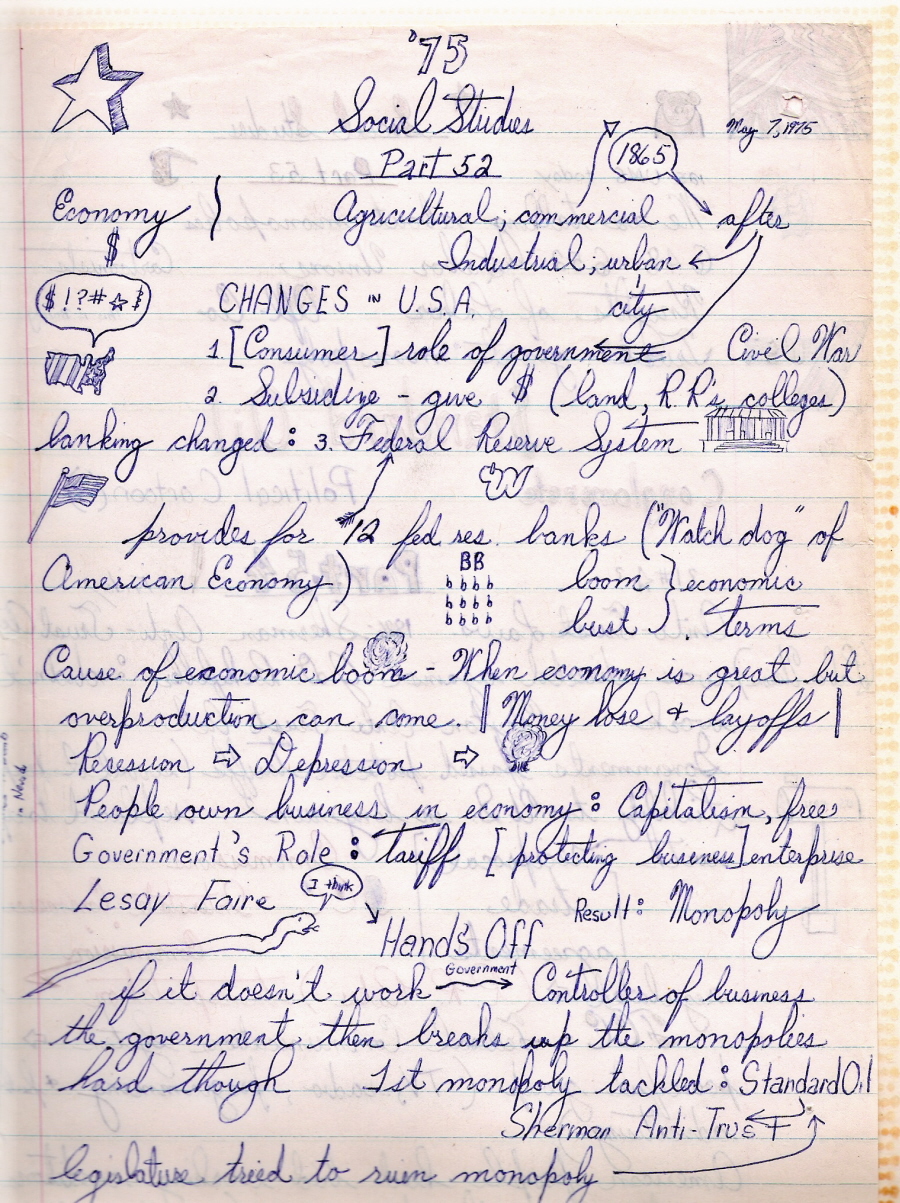 '75
Social Studies
May 7, 1975
Part 52
1865
Economy } Agricultural; commercial after
$ Industrial; urban
$!?#☆ CHANGES IN U.S.A. city
1. [Consumer] role of government Civil War
2. Subsidize - give $ (land, R.R's, colleges)
banking changed: 3. Federal Reserve System
EW
provides for 12 fed res. banks ("Watch dog" of
American Economy) BB boom } economic
b b b b
b b b b
b b b b
bust } . terms
Cause of economic boom - When economy is great but
overproduction can come. | Money lose + layoffs |
Recession ⇨ Depression ⇨
People own business in economy: Capitalism, free
Government's Role: tariff [protecting business] enterprise
Lesay Faire I think Result: Monopoly
Hands Off
if it doesn't work Government → Controller of business
the government then breaks up the monopolies
hard though 1st monopoly tackled: Standard Oil
Sherman Anti-Trust
legislature tried to ruin monopoly